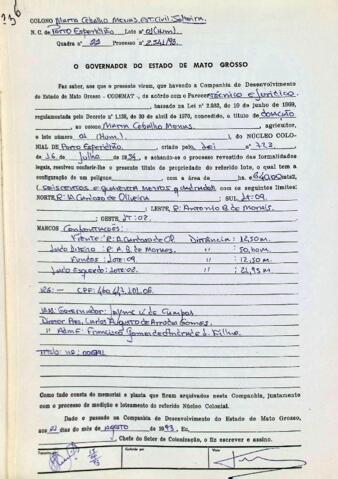 COLONO Marta Ceballo Moraes. Est. Civil Solteira.
N. C. de Porto Esperidião Lote n.o 01 (Hum)
Quadra n.o 22 Processo n.o
O GOVERNADOR DO ESTADO DE MATO GROSSO
Faz saber, aos que o presente virem, que havendo a Companhia de Desenvolvimento
do Estado de Mato Grosso - CODEMAT, de acordo com o Parecer Técnico e Jurídico
bascada na Lei n.o 2.983, de 10 de junho de 1969,
regulamentada pelo Decreto n.o 1.138, de 30 de abril de 1970, concedido, a título de doação
ao colono Marta Ceballo Moraes. agricultor,
e lote número 01 (Hum.) do NÚCLEO COLO-
NIAL DE Porto Esperidião criado pelo Lei n.o
de 16 de Julho de e achando-se o processo revestido das formalidades
legais, resolveu conferir-lhe o presente título de propriedade do referido lote, o qual tem a
configuração de um polígono com a área de 640,00 mts2
(seiscentos e quarenta metros quadrados com os seguintes limites:
NORTE R: A Cardoso de Oliveira SUL LT: 09.
; LESTE R: Antonio B de Morais
; OESTE LT: 02.
MARCOS Confrontações:
Frente: R: A Cardoso de Ol. Distância: 12,50 m.
Lado Direito: R: A. B. de Moraes. " :
Fundos: Lote: 09 " : 12,50 m.
Lado Esquerdo: Lote: 02. " :
CPF:
Governador: Jayme V. de Campos
Diretor Pres. Carlos Augusto de Arruda Gomes.
" Admf. Francisco Gomes de Andrade L. Filho.
Titulo no:
Como tudo consta do memorial e planta que foram arquivados nesta Companhia, juntamente
com o processo de medição e loteamento do referido Núcleo Colonial.
Dado e passado na Companhia de Desenvolvimento do Estado de Mato Grosso,
aos dias do mês de Agosto de 1993. Eu,
, Chefe do Setor de Colonização, o fiz escrever e assino.
Conferido por
Visto